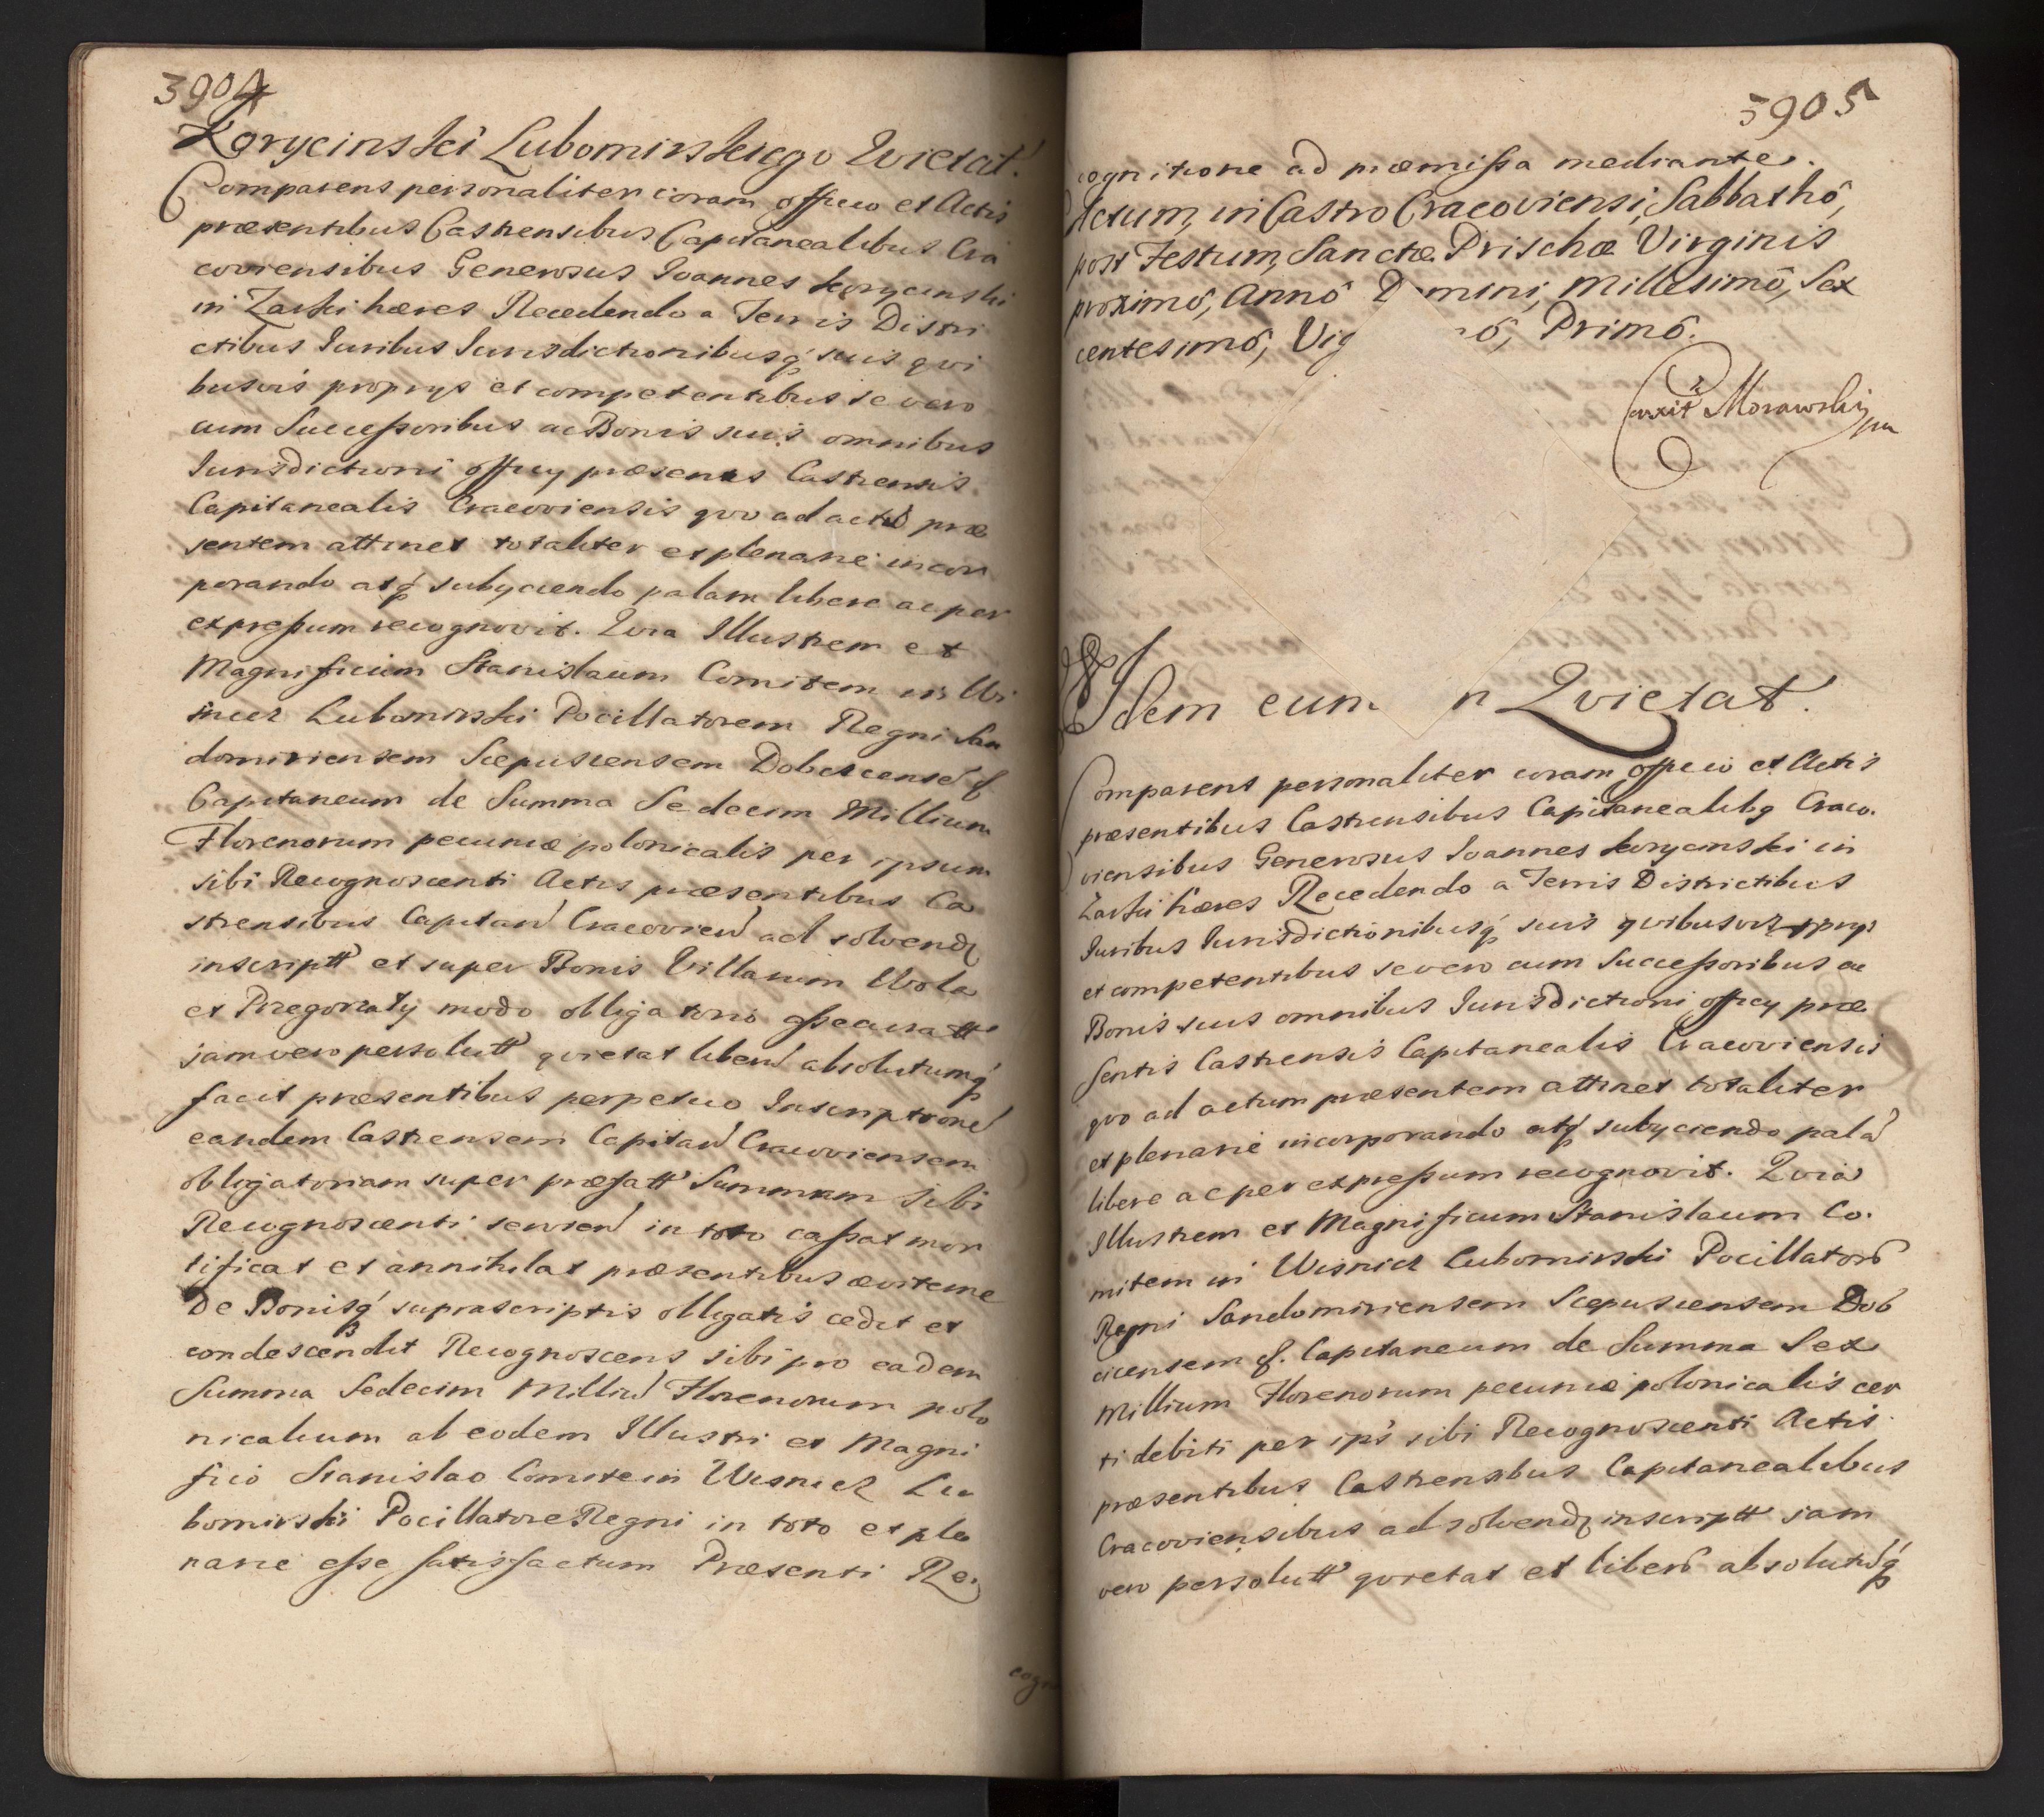 3904
Korycinski Lubomirskiego Quietat.
Comparens personaliter coram officio et Actis
præsentibus Castrensibus Capitanealibus Cra
coviensibus Generosus Joannes Korycinski
in Zarki hæres Recedendo a Terris Distri
ctibus Juribus Jurisdictionibusq́ suis qui
busvis proprys et competentibus se vero
cum Successoribus ac Bonis suis omnibus
Jurisdictioni officy præsentis Castrensis
Capitanealis Cracoviensis quo ad actū præ
sentem attinet totaliter et plenarie incor
porando atq́ subyciendo palam libere ac per
expressum recognovit. Quia Illustrem et
Magnificum Stanislaum Comitem in Wi
snicz Lubomirski Pocillatorem Regni San
domiriensem Scepusiensem Dobcicensē &
Capitaneum de Summa Sedecim Millium
Florenorum pecuniæ polonicalis per ipsum
sibi Recognoscenti Actis præsentibus Ca
strensibus Capitan Cracovien ad solvend
inscriptt et super Bonis Villarum Wola
et modo obligatorio assecuratt
jam vero persolutt quietat liberū absolutumq́
facit præsentibus perpetuo Inscriptionē
eandem Castrensem Capitan Cracoviensem
obligatoriam super præfatt Summam sibi
Recognoscenti servien in toto cassat mor
tificat et annihilat præsentibus æviterne
De Bonisq́ suprascriptis obligatis cedit et
condescendit Recognoscens sibi pro eadem
Summa Sedecim Milliū Florenorum polo
nicalium ab eodem Illustri et Magni
fico Stanislao Comite in Wisnicz Lu
bomirski Pocillatore Regni in toto et ple
narie esse satisfactum Præsenti Re
cogn
3905
cognitione ad præmissa mediante.
Actum, in Castro Cracoviensi, Sabbathô,
post Festum, Sanctæ Prischæ Virginis
proximô, Annô D mini, Millesimô, Sex
centesimô, Vig nô, Primô.
Morawski
Idem eun n Quietat.
Comparens personaliter coram officio et Actis
præsentibus Castrensibus Capitanealibg Craco.
viensibus Generosus Joannes Korycinski in
Zarki hæres Recedendo a Terris Districtibus
Juribus Jurisdictionibusq́ suis quibusvis pprys
et competentibus se vero cum Successoribus ac
Bonis suis omnibus Jurisdictioni officy præ
sentis Castrensis Capitanealis Cracoviensis
quo ad actum præsentem attinet totaliter
et plenarie incorporando atq́ subyciendo palā
libere ac per expressum recognovit. Quia
Illustrem et Magnificum Stanislaum Co.
mitem in Wisnicz Lubomirski Pocillatorē
Regni Sandomiriensem Scepusiensem Dob
cicensem &. Capitaneum de Summa Sex
Millium Florenorum pecuniæ polonicalis cer
ti debiti per ips sibi Recognoscenti Actis
præsentibus Castrensibus Capitanealibus
Cracoviensibus ad solvend inscriptt jam
vero persolutt quietat et liberū absolutūq́